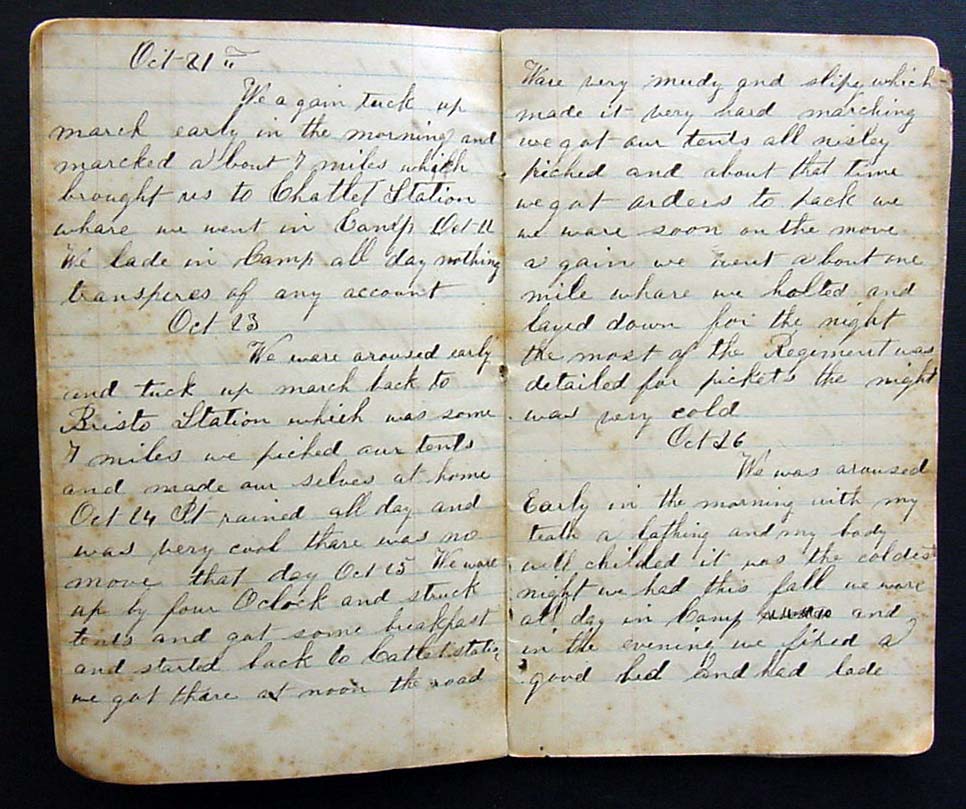 Oct 21 "
We a gain tuck up
march early in the morning and
marcked a bout 7 miles which
brought us to Chatlet Station
whare we went in Camp Oct 22
We lade in Camp all day nothing
transperes of any account
Oct 23
We ware aroused early
and tuck up march back to
Bristo Station which was some
7 miles we piched our tents
and made our selves at home
Oct 24 It rained all day and
was very cool thare was no
move that day Oct 25 We ware
up by four Oclock and struck
tents and got some breakfast
and started back to Catlet station
we got thare at noon the road
Ware very mudy and slipy which
made it very hard marching
we got our tents all nisley
piched and about that time
we got orders to pack we
we ware soon on the move
a gain we went a bout one
mile whare we holted and
layed down for the night
the most of the Regiment was
detailed for pickets the night
was very cold
Oct 26
We was aroused
Early in the morning with my
teath a and my body
will childed it was the coldes
night we had this fall we ware
all day in Camp and
in the evening we fixed a
good bed and had lade